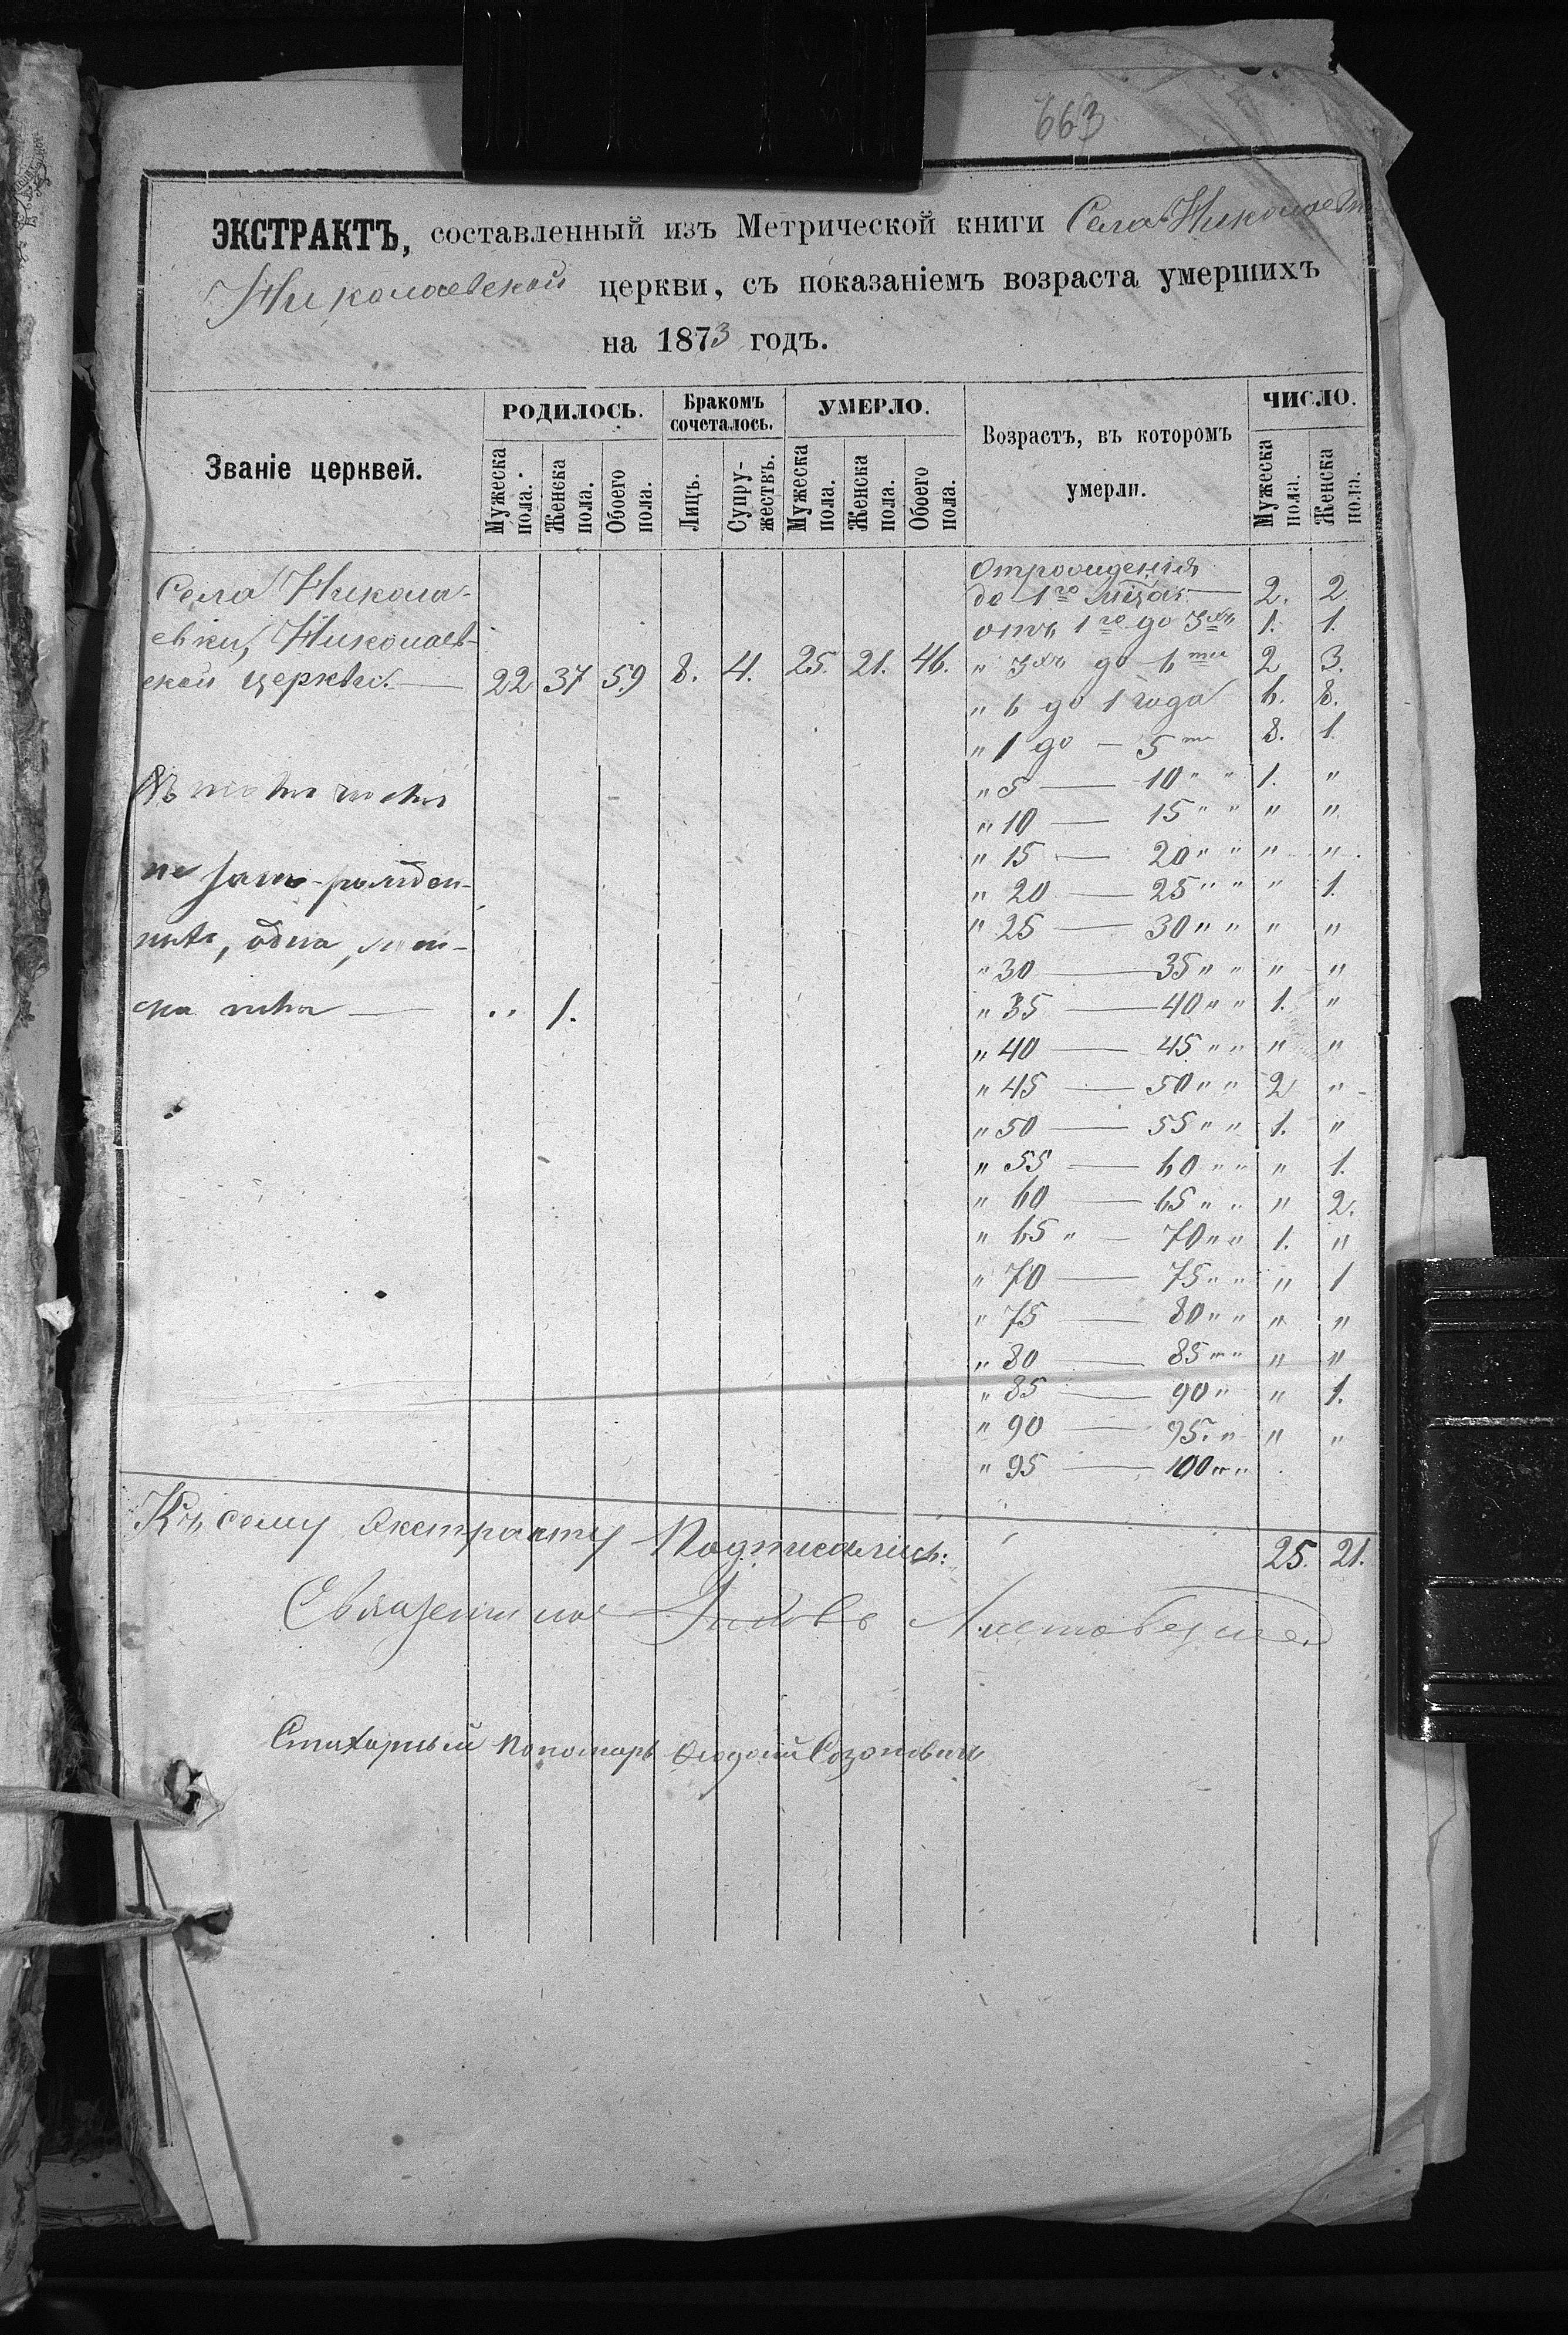 663
ЭКСТРАКТЪ, составленный изъ Метрической книги Села Николаевки
Николаевской церкви, съ показаніемъ возраста умершихъ
на 1873 годъ.
Званіе церквей.
РОДИЛОСЬ.
Бракомъ сочеталось.
УМЕРЛО.
Возрастъ, въ которомъ умерли.
ЧИСЛО.
Мужеска пола. Женска пола. Обоего пола. Лицъ. Супружествъ. Мужеска пола. Женска пола. Обоего пола. Мужеска пола. Женска пола.
Села Никола-
евки, Николаев-
ской церкви. — 22 37 59 8. 4. 25. 21. 46.
Въ томъ числѣ
не зако-рожден-
ныхъ, одна, жен-
ска пола — " 1.
Отрождения
до 1го мцза — 2. 2
отъ 1го до 3хъ 1. 1.
" 3хъ до 6ти 2 3.
" 6 до 1 года 6. 8.
" 1 до — 5ти 8. 1.
" 5 — 10 " " 1. "
" 10 — 15 " " " "
" 15 — 20 " " " "
" 20 — 25 " " " 1.
" 25 — 30 " " " "
" 30 — 35 " " " "
" 35 — 40 " " 1. "
" 40 — 45 " " " "
" 45 — 50 " " 2 "
" 50 — 55 " " 1. "
" 55 — 60 " " " 1.
" 60 — 65 " " " 2.
" 65 " — 70 " " 1. "
" 70 — 75 " " " 1
" 75 — 80 " " " "
" 80 — 85 " " " "
" 85 — 90 " " 1.
" 90 — 95. " " "
" 95 — 100 " "
25. 21.
Къ сему экстракту подписались:
Священникъ Іаковъ
Стихарный Пономарь Ѳеодосий Созонович